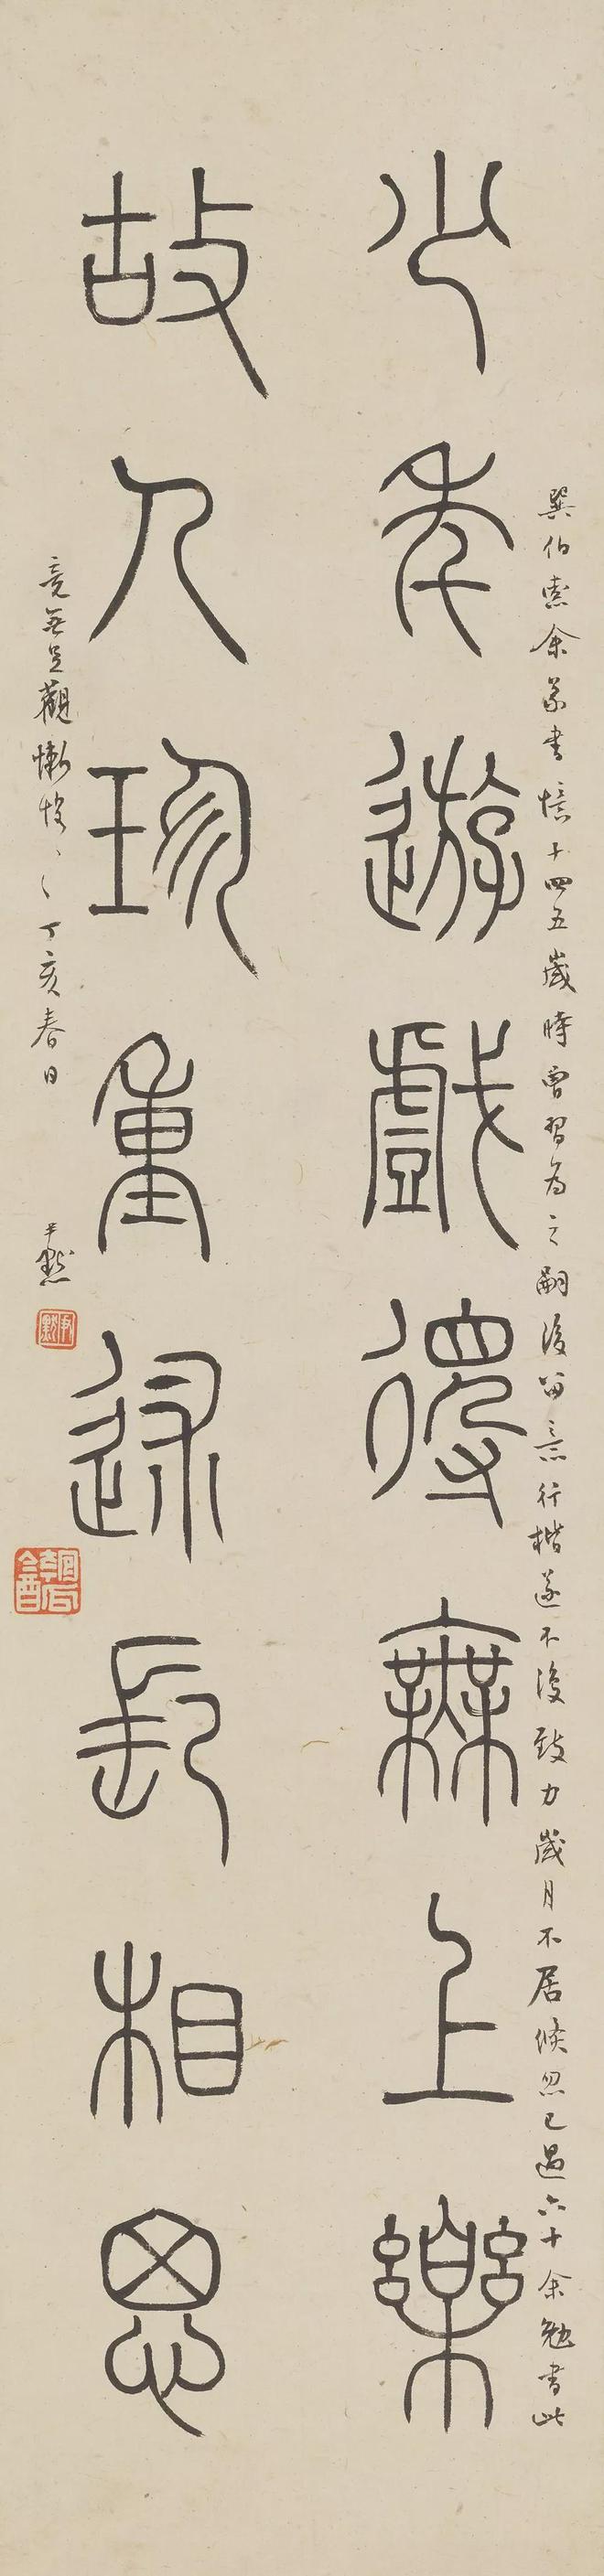 巽伯索余篆書憶十四五歲時曾習為之嗣後留意行楷遂不復致力歲月不居倏忽已過六十余勉書此
少年遊戲得無上樂
故人珍重逮長相思
竟無足觀慚愧〻〻丁亥春日
尹默
尹默